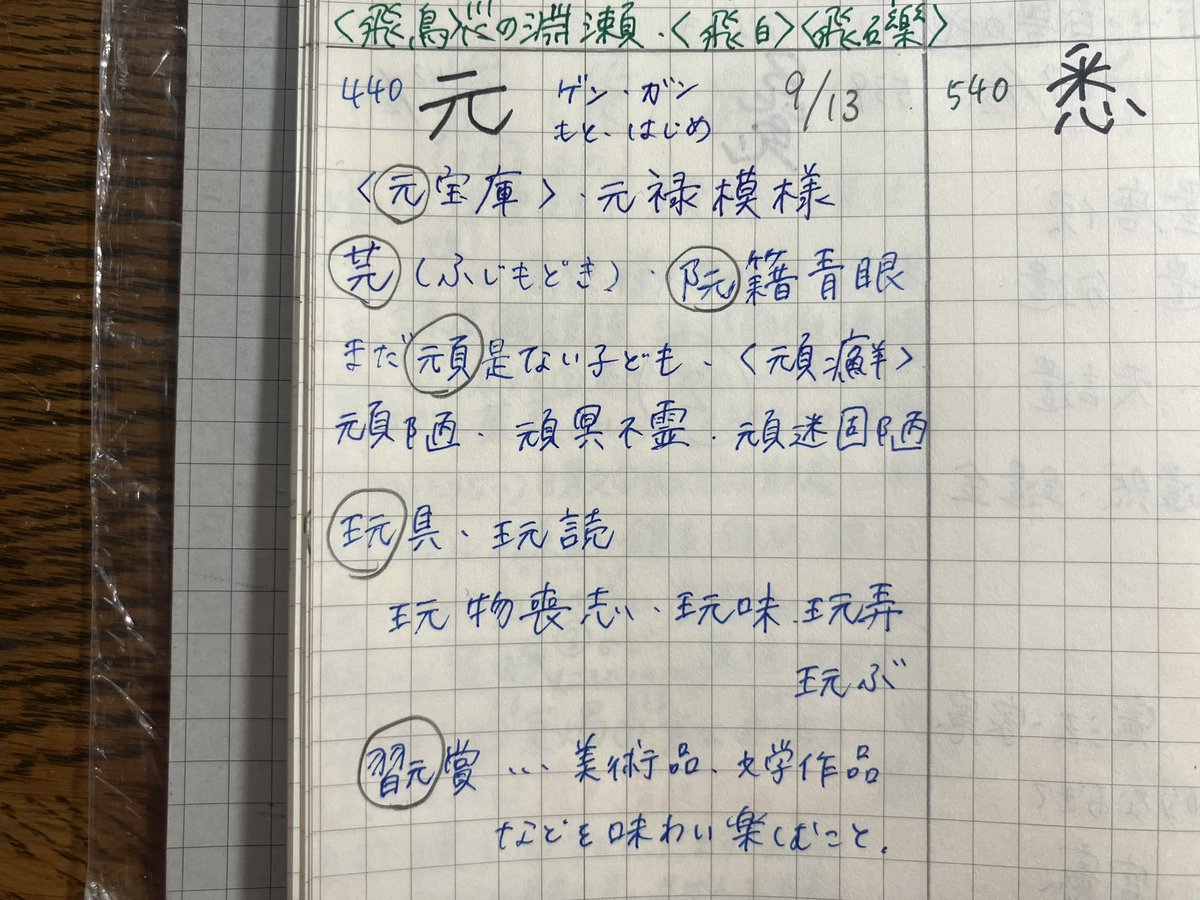 〈飛鳥〉の淵瀬.〈飛白〉〈飛礫〉
440 元 ゲン・ガン 9/13
もと・はじめ
〈元宝庫〉・元禄模様
芫(ふじもどき)・阮籍青眼
まだ頑是ない子ども、〈頑癬〉
頑陋・頑冥不霊・頑迷固陋
玩具、玩読
玩物喪志い・玩味、玩弄
玩ぶ
翫賞 … 美術品、文学作品
などを味わい楽しむこと.
540 悉